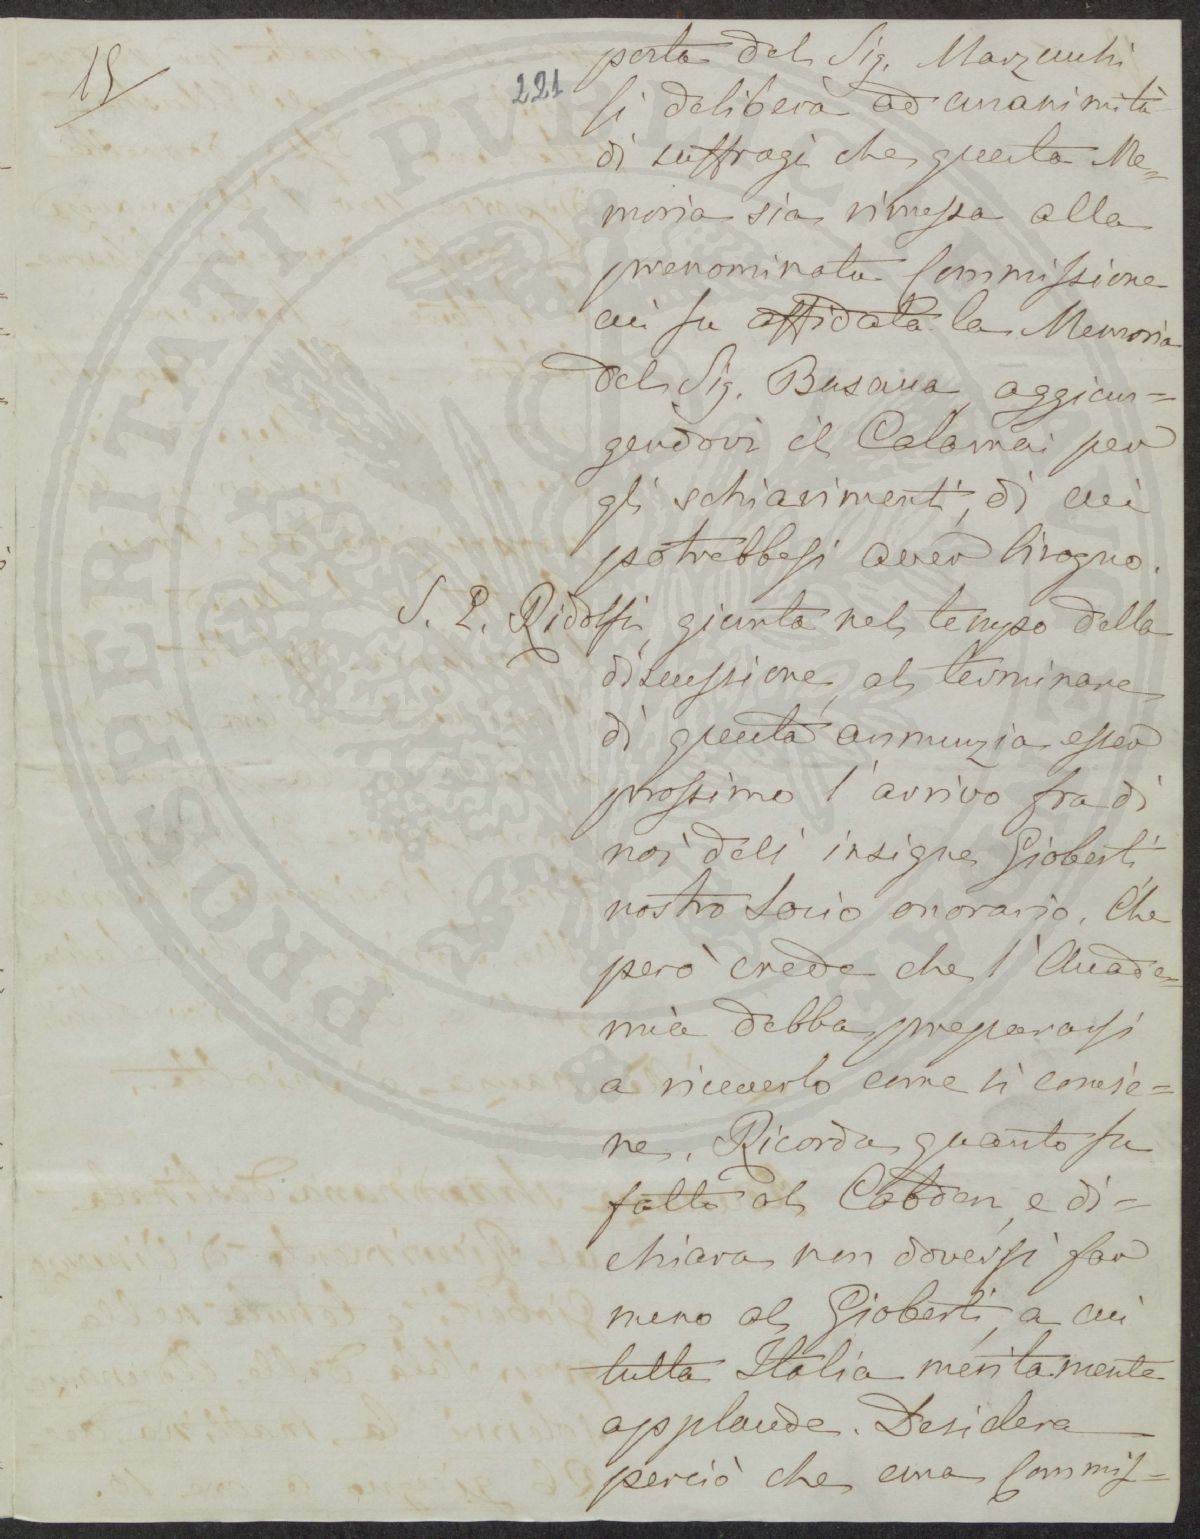 15
221
posta del Sig. Marzucchi
si deliberà ad unanimità
di suffragi che questa Me=
moria sia rimessa alla
prenominata Commissione
cui fu affidata la Memoria
del Sig. Busacca, aggiun=
gendovi il Calamai per
gli schiarimenti, di cui
potrebbesi aver bisogno.
S. P. Ridolfi, giunto nel tempo della
discussione, al terminare
di questa annunzia esser
prossimo l'arrivo fra di
noi dell'insigne Gioberti,
nostro Socio onorario. Che
però crede che l'Accade=
mia debba prepararsi
a riceverlo come si convie=
ne. Ricorda quanto fu
fatto al Cobden, e di=
chiara non doversi far
meno al Gioberti, a cui
tutta Italia meritamente
applaude. Desidera
perciò che una Commis=
PROSPERITATI PVBLICAE AVGENDAE